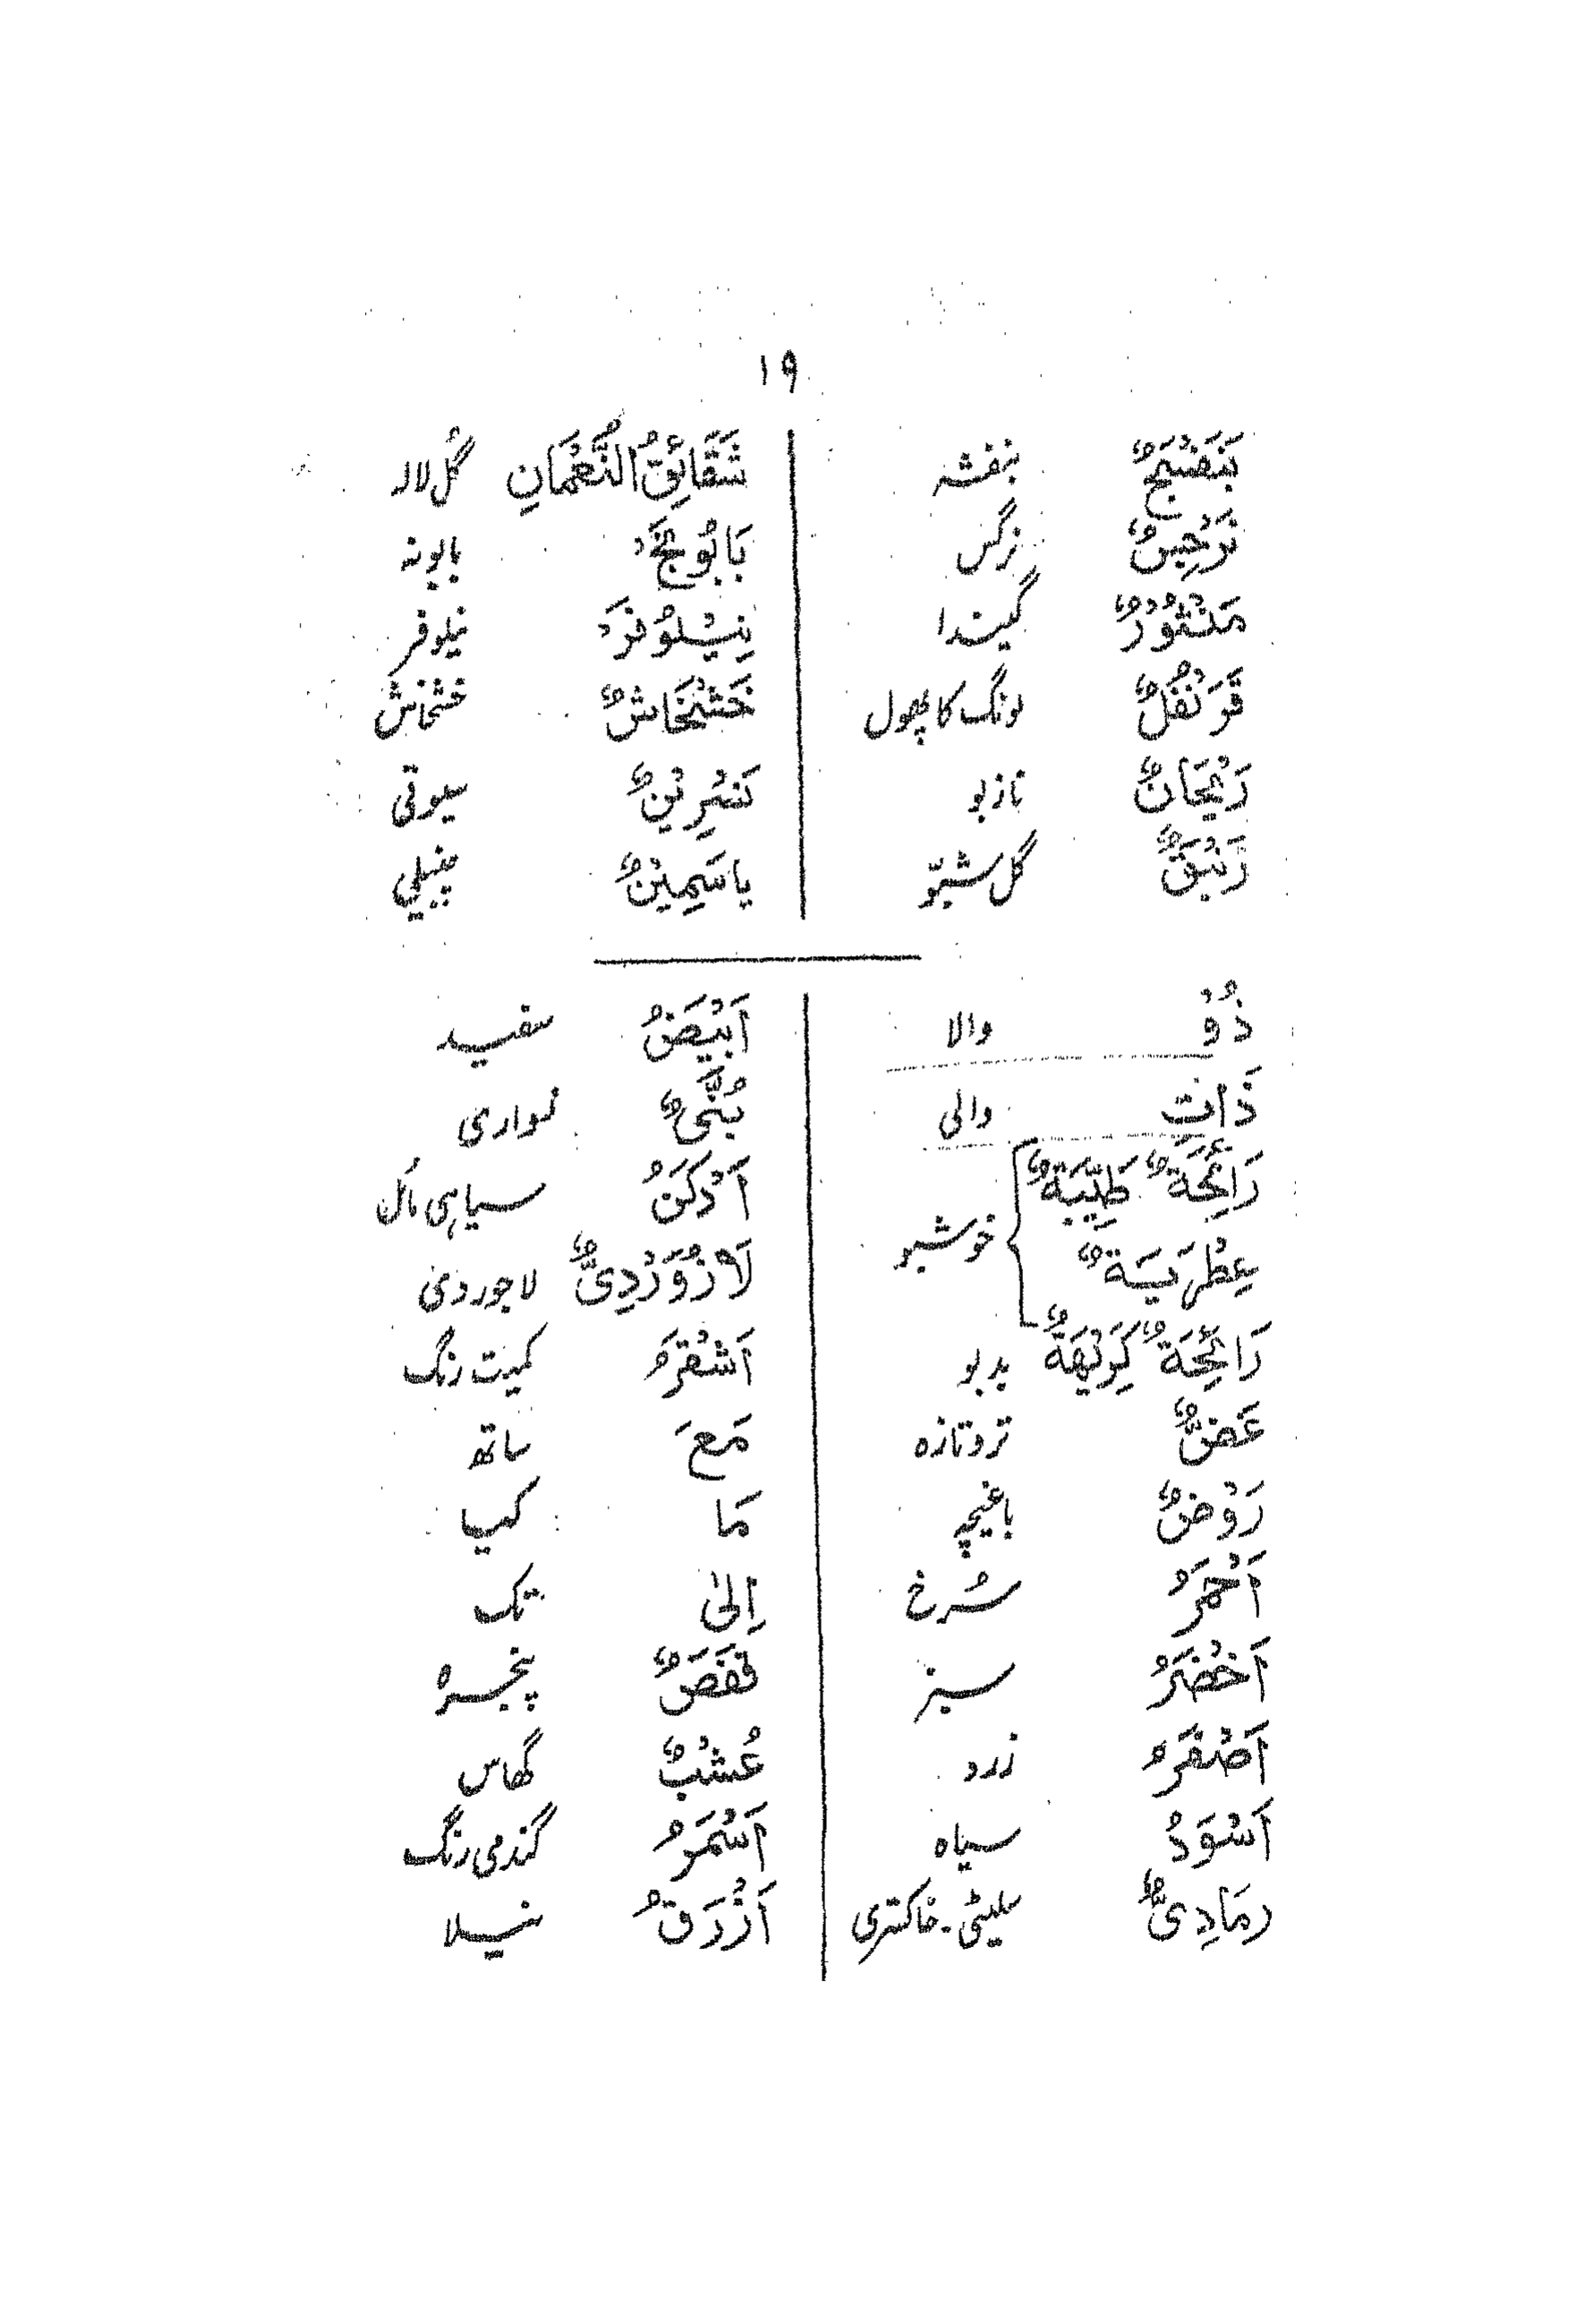 ۱۹
بَنَفْسَجٌ بنفشہ
نَرْجِسٌ نرگس
مَنْثُوْرٌ گیندا
قَرَنْفُلٌ لونگ کا پھول
رَيْحَانٌ نازبو
زَنْبَقٌ گل شبّو
شَقَائِقُ النُّعْمَانِ گُل لالہ
بَابُوْنَجٌ بابونہ
نِيْلُوْفَرُ نیلوفر
خَشْخَاشٌ خشخاش
نَسْرِيْنٌ سیوتی
يَاسَمِيْنٌ چنبیلی
ذُوْ والا
ذَاتِ والی
رَائِحَةٌ طَيِّبَةٌ
عِطْرِيَّةٌ
خوشبو
رَائِحَةٌ كَرِيْهَةٌ بدبو
غَضٌّ تروتازہ
رَوْضٌ باغیچہ
اَحْمَرُ سُرخ
اَخْضَرُ سبز
اَصْفَرُ زرد
اَسْوَدُ سیاہ
رَمَادِیٌّ سلیٹی۔ خاکستری
اَبْيَضُ سفید
بُنِّیٌّ نسواری
اَدْكَنُ سیاہی مائل
لَازُوَرْدِیٌّ لاجوردی
اَشْقَرُ کمیت رنگ
مَعَ ساتھ
مَا کیا
اِلیٰ تک
قَفَصٌ پنجرہ
عُشْبٌ گھاس
اَسْمَرُ گندمی رنگ
اَزْرَقُ نیلا